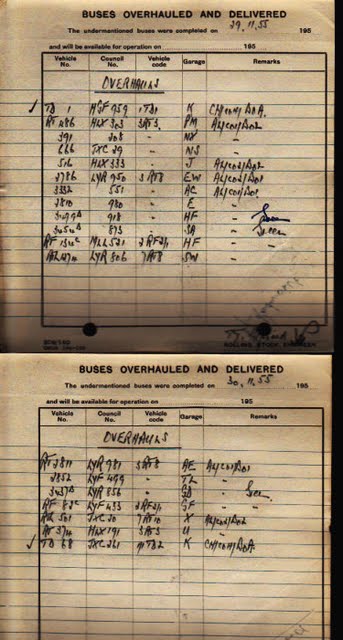 BUSES OVERHAULED AND DELIVERED
The undermentioned buses were completed on 29.11.55 195
and will be available for operation on 195
Vehicle No. Council No. Vehicle code Garage Remarks
OVERHAULS
✓ TD 1 HGF 959 1TD1 K CH/COH/DOA
RT 486 HLX 303 3RT3 PM AL/CO2/DO2
391 208 " NX "
666 JXC 29 " NS "
516 HLX 333 " J AL/CO2/DO2
2786 LYR 950 3RT8 EW AL/CO1/DO1
3332 551 " AC AL/CO2/DO1
2810 980 " E "
918 " HF " Green
873 " SA " Green
MLL 521 2RF2/1 HF "
LYR 506 7RT8 SW "
ROLLING STOCK ENGINEER
BUSES OVERHAULED AND DELIVERED
The undermentioned buses were completed on 30.11.55 195
and will be available for operation on 195
Vehicle No. Council No. Vehicle code Garage Remarks
OVERHAULS
RT 2811 LYR 981 3RT8 AE AL/CO1/DO1
2852 LYF 499 " TL "
LYR 856 " " Green
LYF 433 2RF2/1 GF "
501 JXC 20 7RT10 X AL/CO2/DO2
RT 374 HLX 191 3RT3 U "
✓ TD 68 JXC 261 4TD2 K CH/COH/DOA